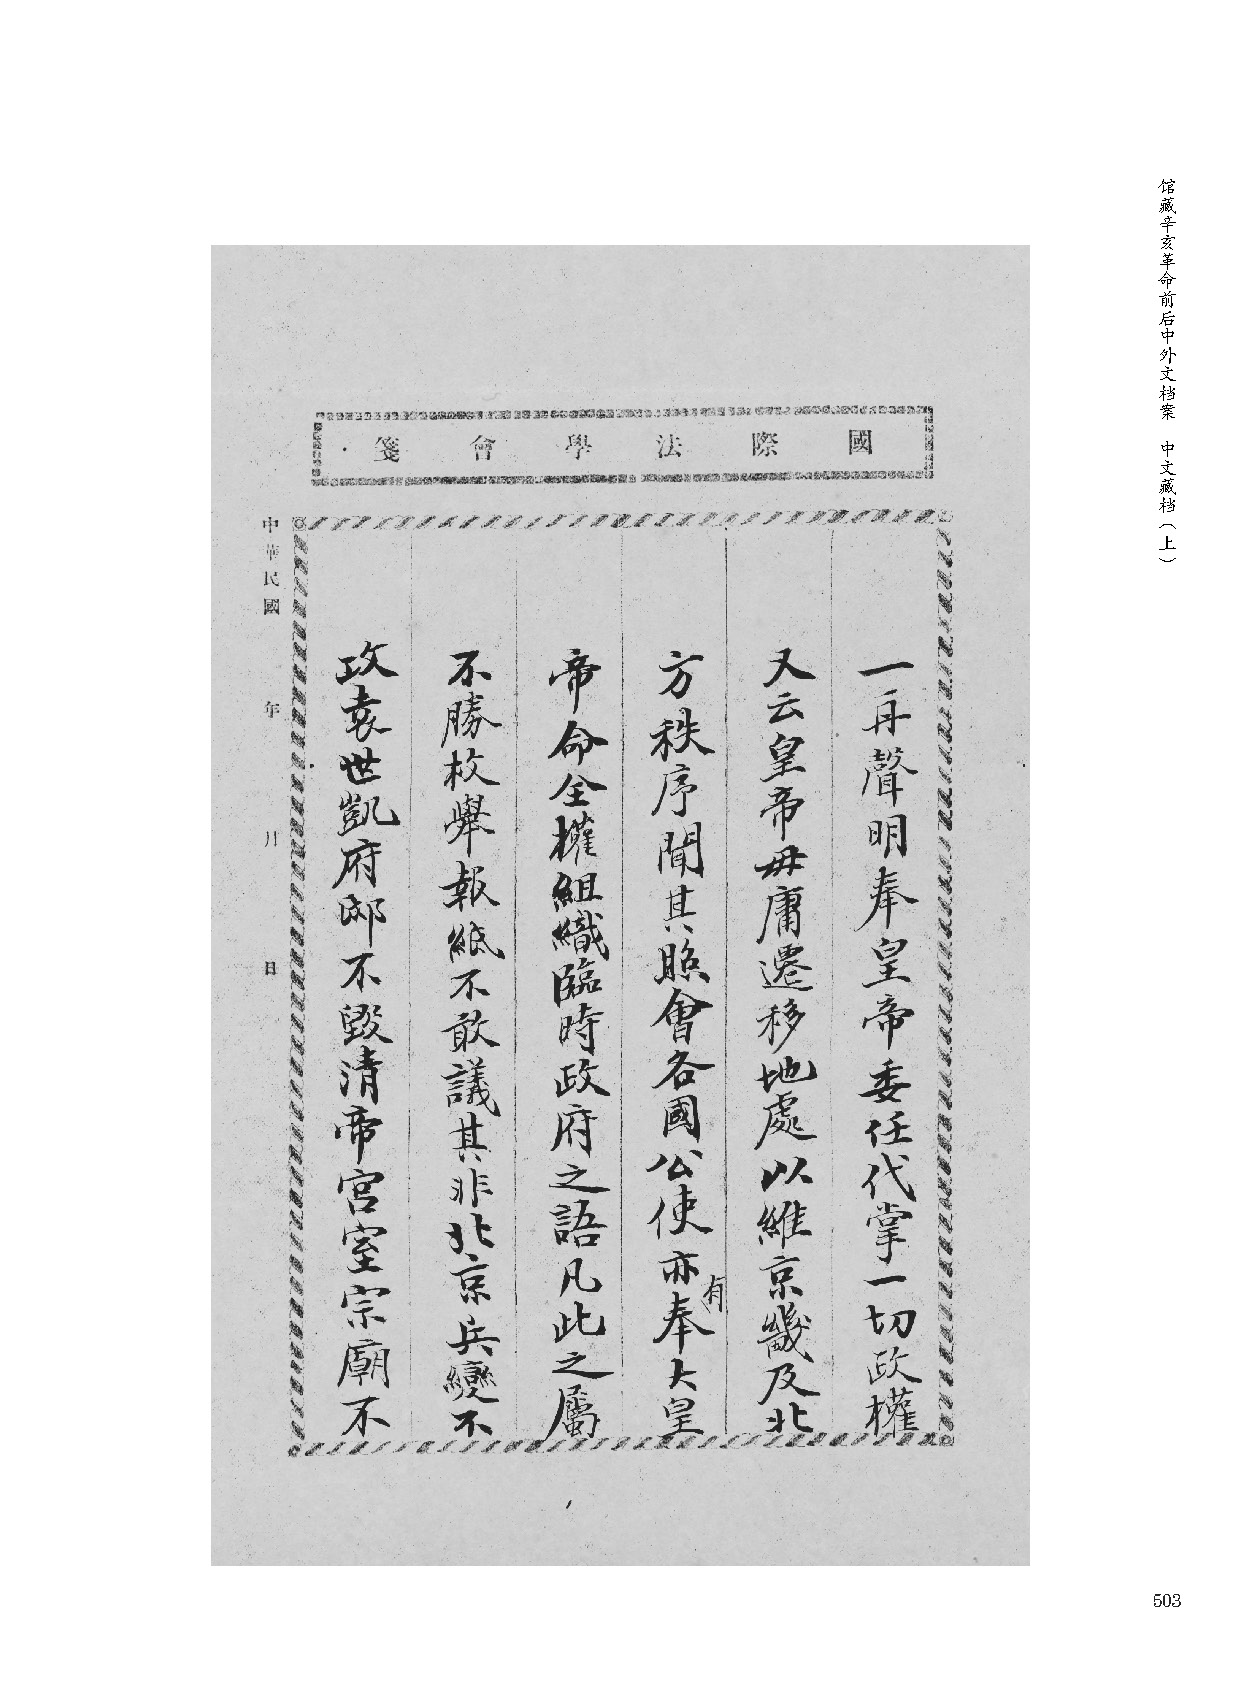 馆藏辛亥革命前后中外文档案　中文藏档（上）
國際法學會箋
一再聲明奉皇帝委任代掌一切政權
又云皇帝毋庸遷移地處以維京畿及北
方秩序聞其照會各國公使亦有奉大皇
帝命全權組織臨時政府之語凡此之屬
不勝枚舉報紙不敢議其非北京兵變不
攻袁世凱府邸不毀清帝宮室宗廟不
中華民國　年　月　日
503